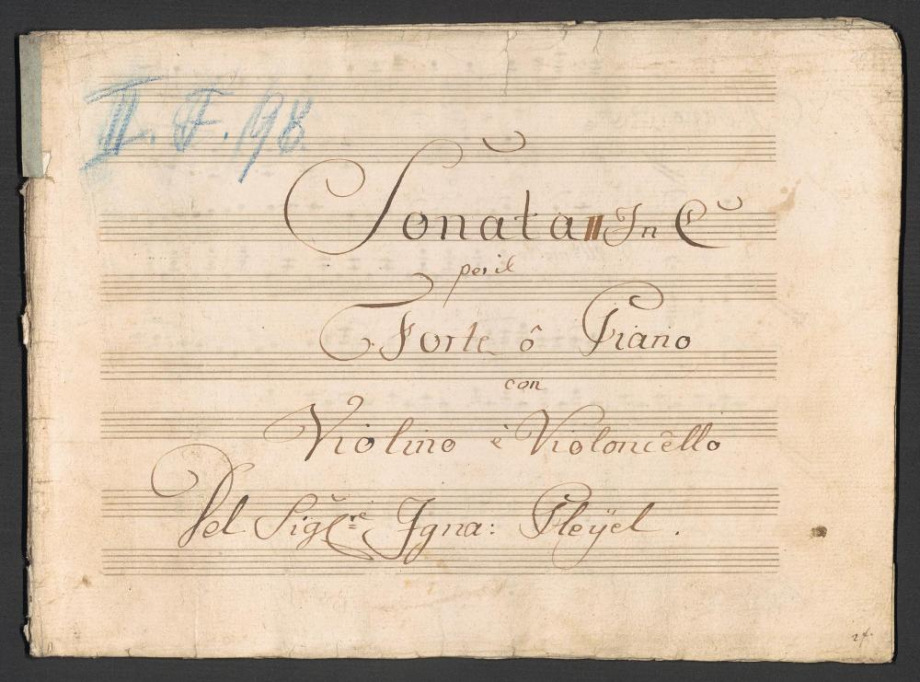 II. F. 98
Sonata II In C
per il
Forte ô Piano
con
Violino è Violoncello
Del Sigre Igna: Pleÿel.